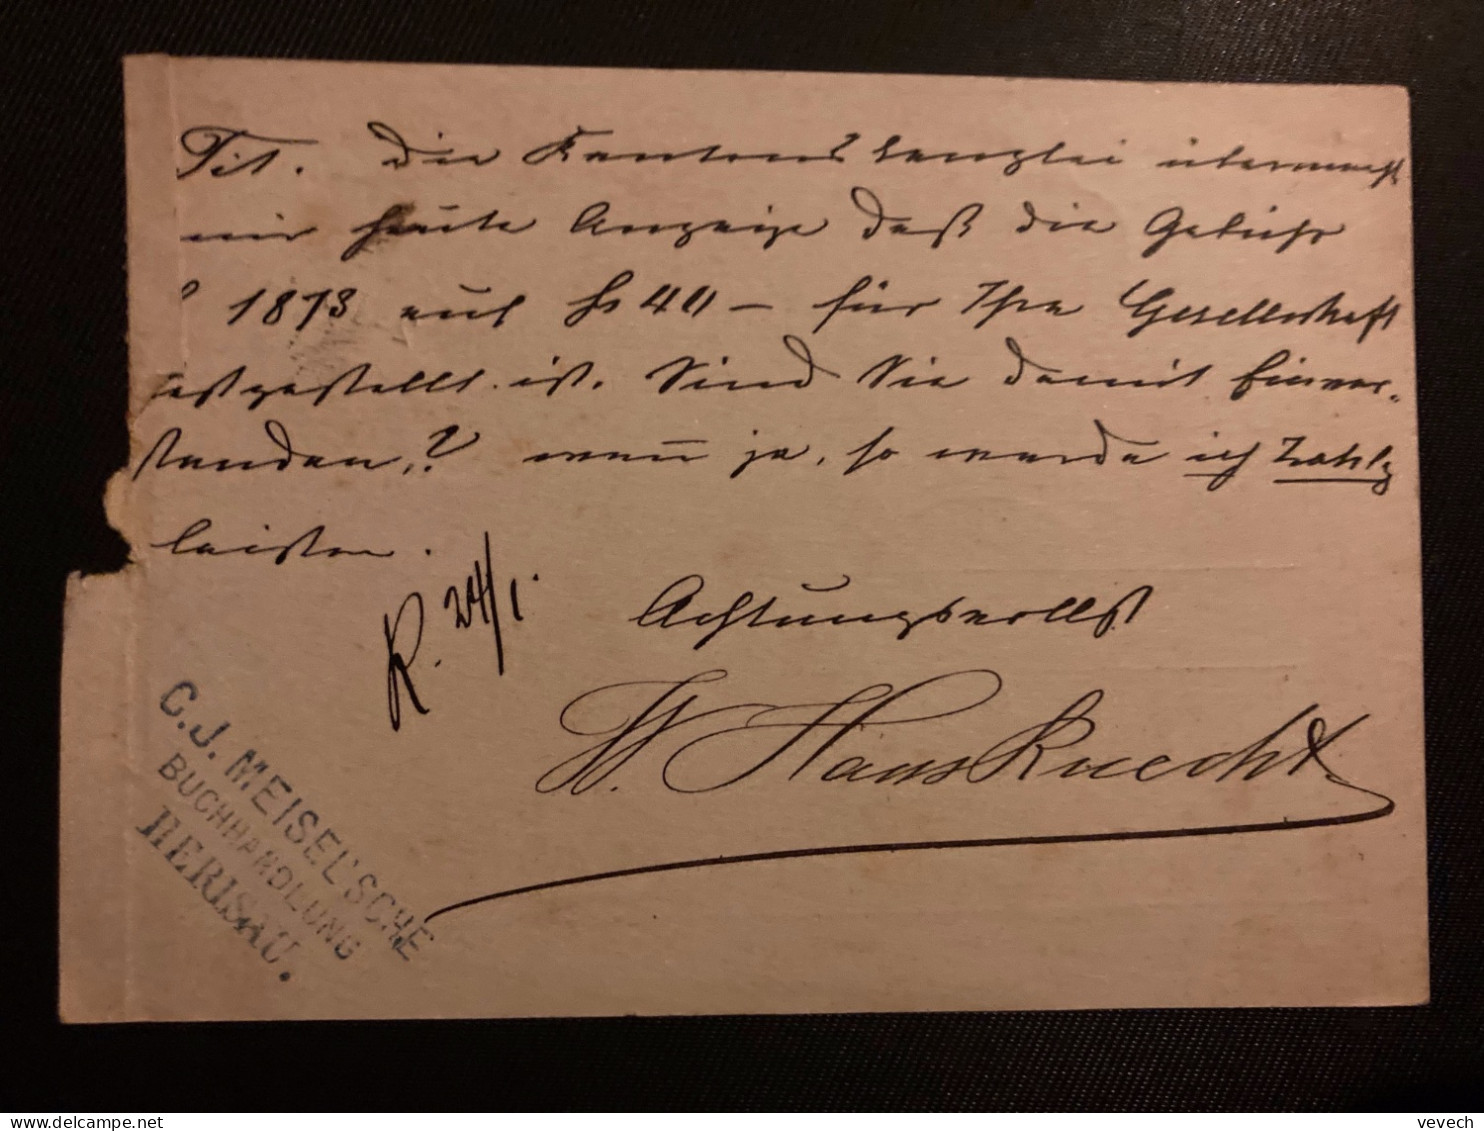 Tit. Die Kantonskanzlei übermacht
mir heute Anzeige daß die Gebühr
1873 auf fs 40 – für Ihre Gesellschaft
festgestellt ist. Sind Sie damit Einver-
standen,? wenn ja, so werde ich Zahlg
leisten.
R. 24/1.
Achtungsvollst
W. Hausknecht
C. J. MEISEL'SCHE
BUCHHANDLUNG
HERISAU.
vevech